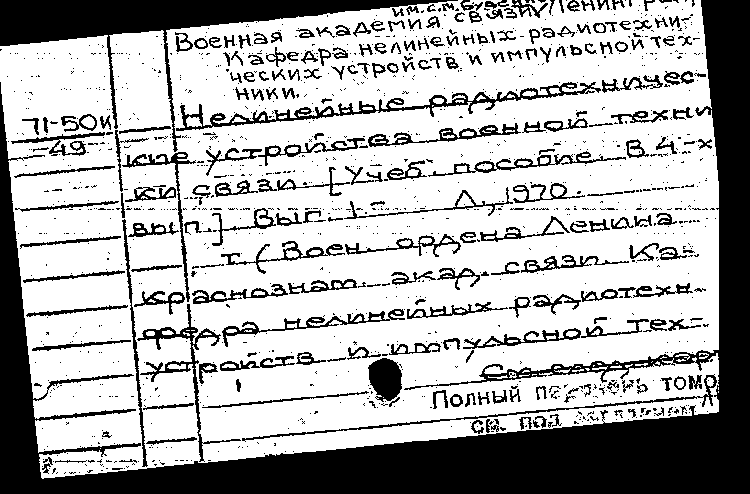 им. С.М.
Военная академия связи
Кафедра нелинейных радиотехни-
ческих устройств и импульсной тех-
ники.
71-50и
49
Нелинейные радиотехничес-
кие устройства военной техни
ки связи. [Учеб. пособие. В 4-х
вып]. Вып. 1- Л., 1970.
т. (Воен. ордена Ленина
краснознам. акад. связи. Ка-
федра нелинейных радиотехн.
устройств и импульсной тех-
См. след. карт
Полный перечень томо
см. под